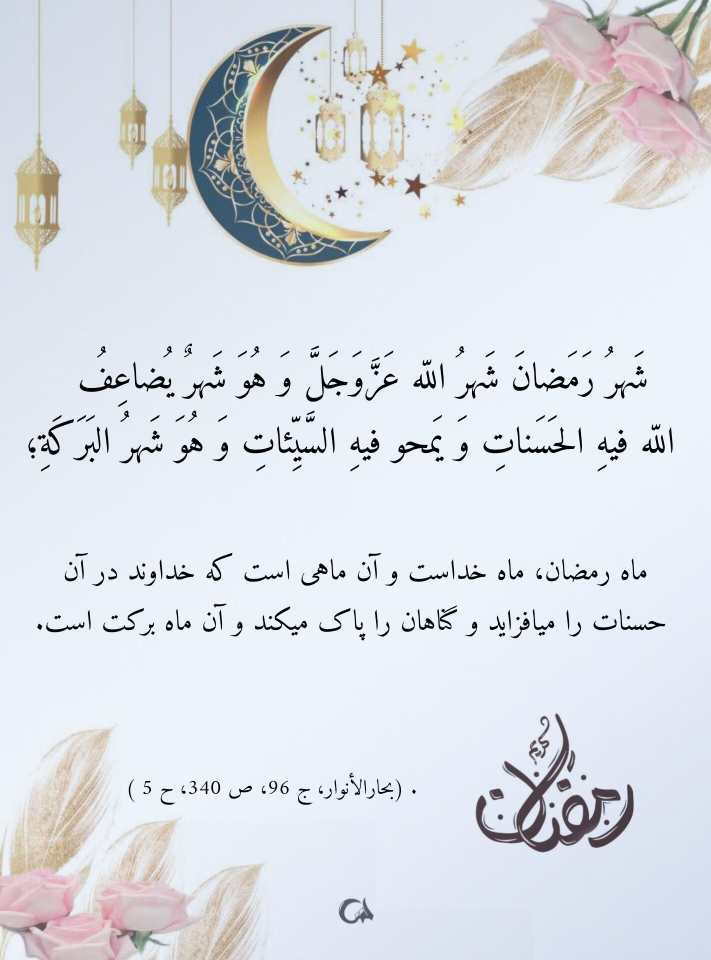 شَهرُ رَمَضانَ شَهرُ اللّه عَزَّوَجَلَّ وَ هُوَ شَهرٌ يُضاعِفُ
اللّه فيهِ الحَسَناتِ وَ يَمحو فيهِ السَّيِّئاتِ وَ هُوَ شَهرُ البَرَكَةِ؛
ماه رمضان، ماه خداست و آن ماهی است که خداوند در آن
حسنات را میافزاید و گناهان را پاک میکند و آن ماه برکت است.
رمضان كريم
. (بحارالأنوار، ج 96، ص 340، ح 5 )